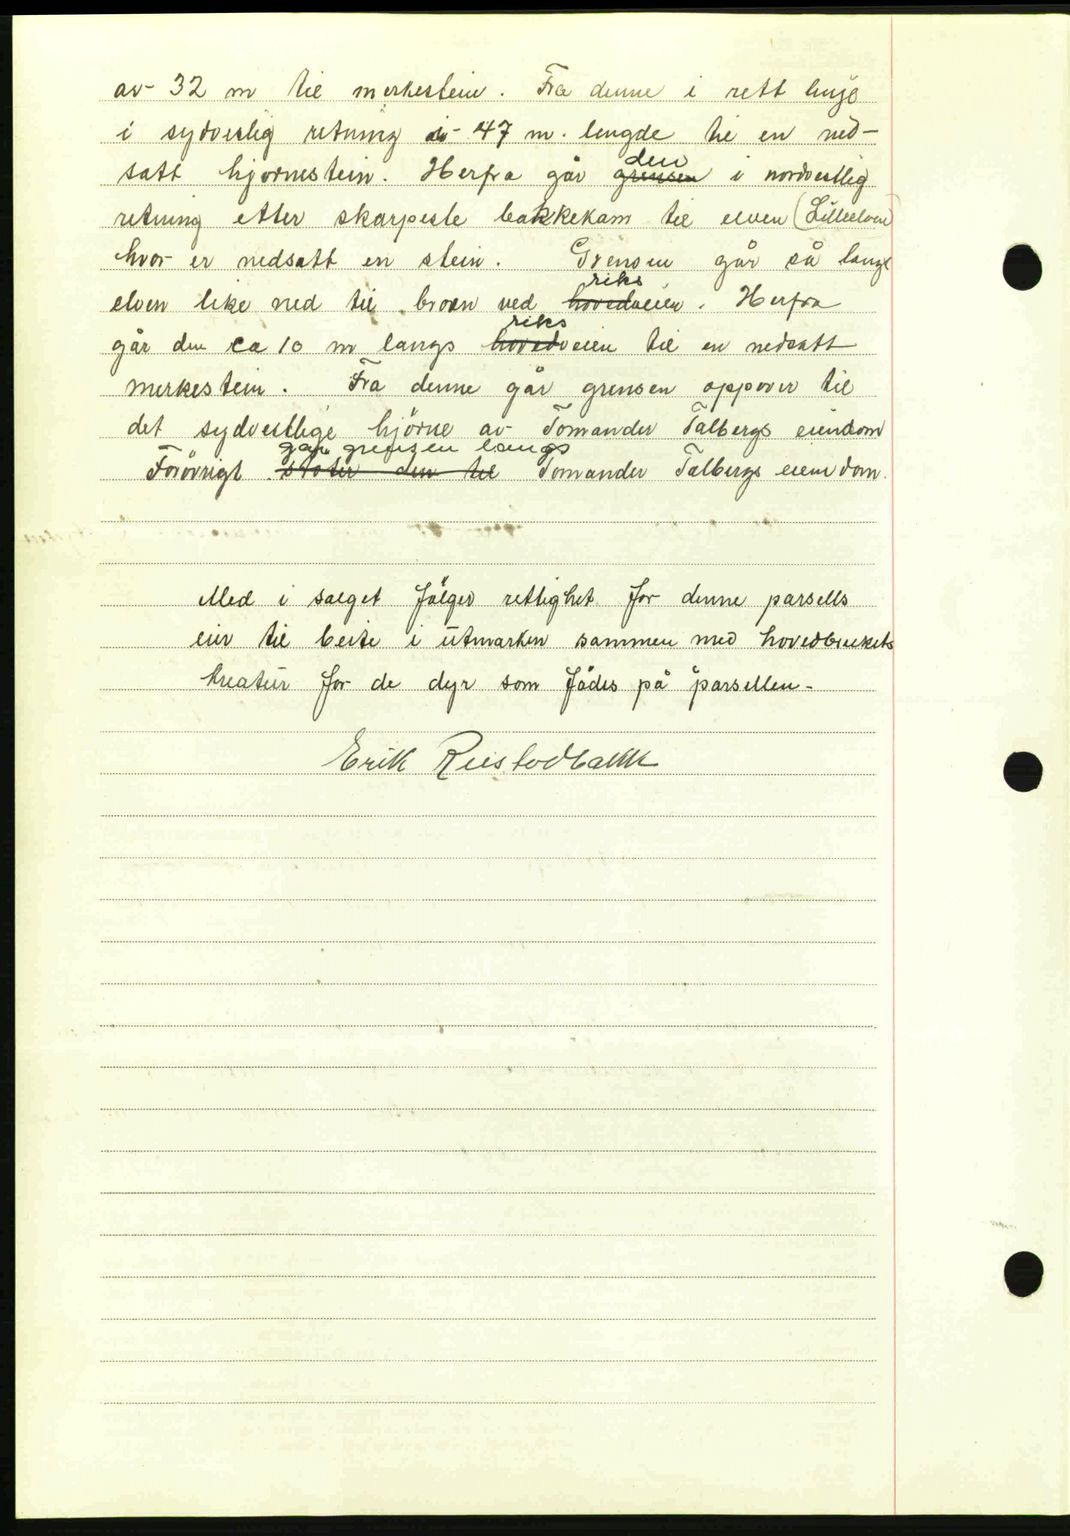 av 32 m til merkestein. Fra denne i rett linje
i sydvestlig retning i 47 m. lengde til en ned-
satt hjørnestein. Herfra går den grensen i nordvestlig
retning etter skarpeste bakkekam til elven (Lilleelven)
hvor er nedsatt en stein. Grensen går så langs
elven like ned til broen ved riks hovedveien. Herfra
går den ca 10 m langs riks hovedveien til en nedsatt
merkestein. Fra denne går grensen oppover til
det sydvestlige hjörne av Tomander Talbergs eiendom
Forövrigt går grensen langs støter den til Tomander Talbergs eiendom.
Med i salget fölger rettighet for denne parsells
eier til beite i utmarken sammen med hovedbrukets
kreatur for de dyr som födes på parsellen-
Erik